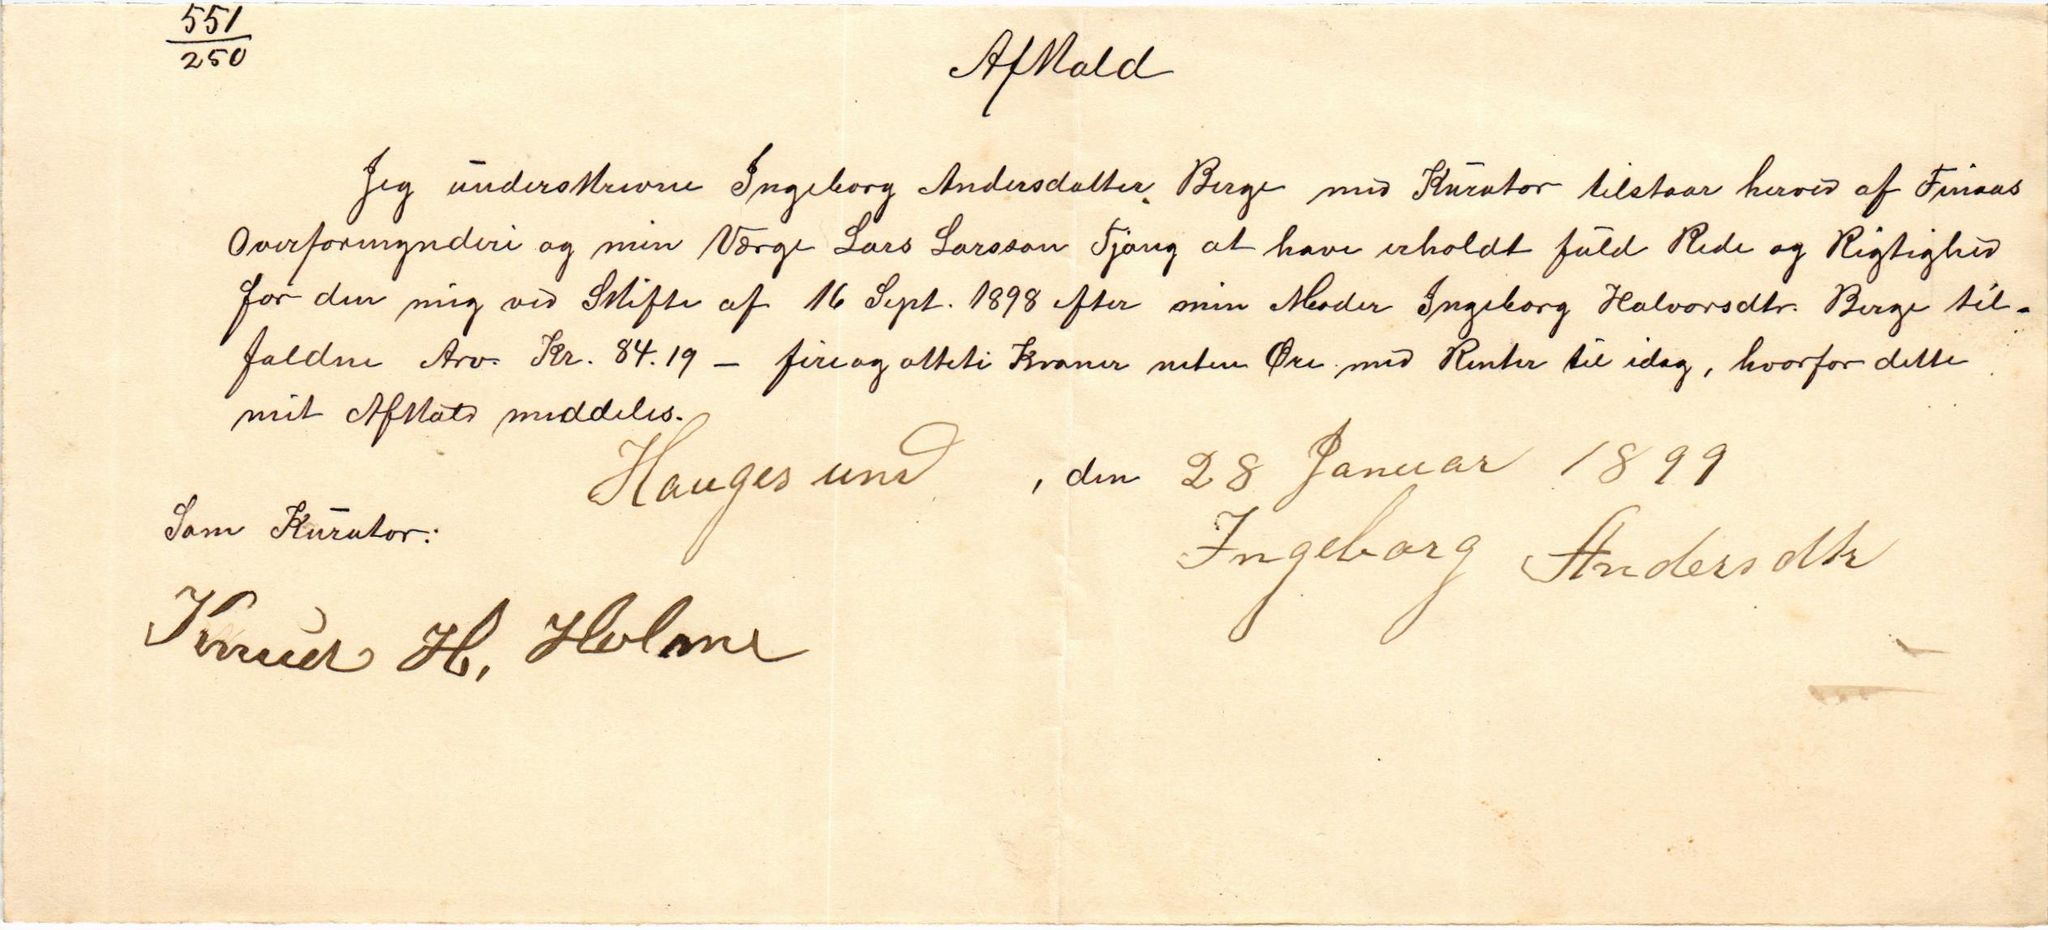 551
250
Afkald
Jeg underskrevne Ingeborg Andersdatter Berge med Kurator tilstaar herved af Finaas
Overformynderi og min Værge Lars Larsson Tjong at have erholdt fuld Rede og Rigtighed
for den mig ved Skifte af 16 Sept. 1898 efter min Moder Ingeborg Halvorsdtr. Berge til-
faldne Arv Kr. 84.19 – fireogotteti Kroner nitten Øre med Renter til idag, hvorfor dette
mit Afkald meddeles.
Haugesund, den 28 Januar 1899
Som Kurator:
Ingeborg Andersdtr
Knud H. Holme